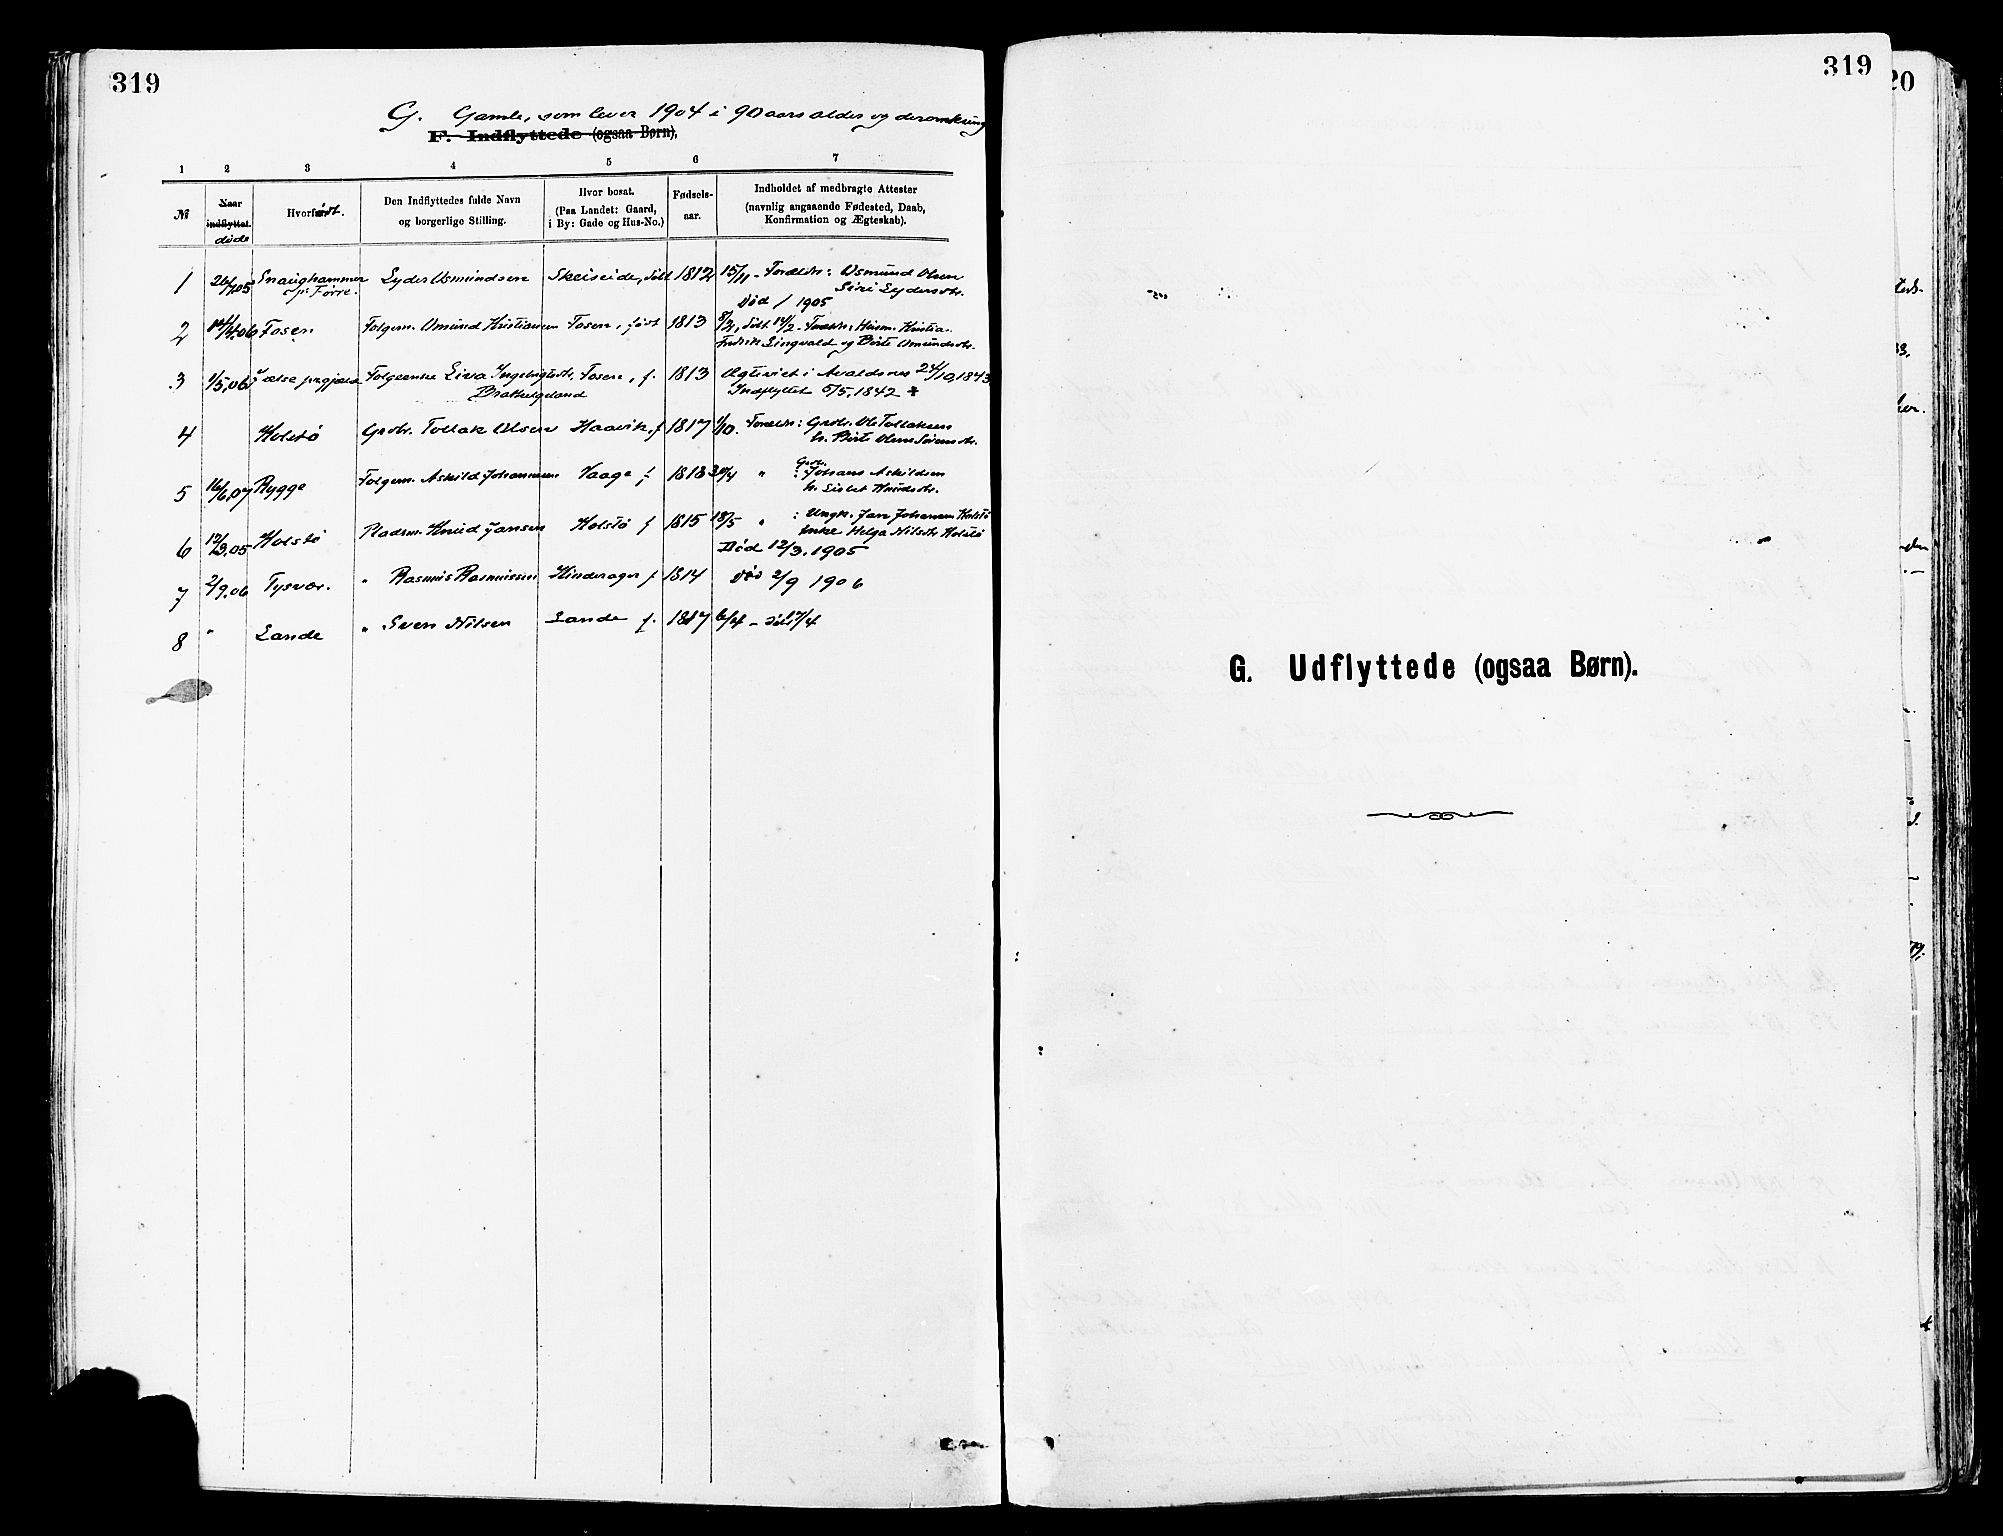 319
G. Gamle, som lever 1904 i 90 aars alder og deromkring
F. Indflyttede (ogsaa Børn),
1 2 3 4 5 6 7
№ Naar indflyttet. døde Hvor født. Den Indflyttedes fulde Navn og borgerlige Stilling. Hvor bosat. (Paa Landet: Gaard, i By: Gade og Hus-No.) Fødsels-aar. Indholdet af medbragte Attester (navnlig angaaende Fødested, Daab, Konfirmation og Ægteskab).
1 26/1.05 Snaighammer Lyder Osmundsen Skeiseide, født 1812 15/11 - Foreldr: Osmund Olsen
p: Førre. Siri Lydersdtr.
Død / 1905
2 Fosen Folgem. Omund Kristiansen Fosen, født 1813 døbt 14/2 - Foreldr: Husm. Kristian
Fredrik Lingvald og Birte Omundsdtr.
3 1/5.06 Folgeenke Siva Fosen, f. 1813 Ægteviet i Avaldsnes 24/10,1843
Indflyttet 5/5,1842
4 Holstø Grdbr. Tollak Olsen Haavik, f 1817 1/10. Foreldr: Grdbr. Ole Tollaksen
5 16/6.07 Rygge Folgem. Askild Johannesen Vaage f 1818 30/4 " : Grdbr. Johans Askildsen
h. Sislet Knudsdtr.
6 12/3.05 Holstø Pladsm. Knud Jansen Holstø f 1815 18/5 " : Ungk. Jan Johansen Holstø
Enke Helga Nilsdtr Holstø
Død 12/3.1905
7 2/9.06 Tysvær. " Rasmus Rasmussen Hinderager f 1814 Død 2/9 1906
8 " Lande " Sven Nilsen Lande f. 1817 6/4 - døbt 7/4
319
20
G. Udflyttede (ogsaa Børn).